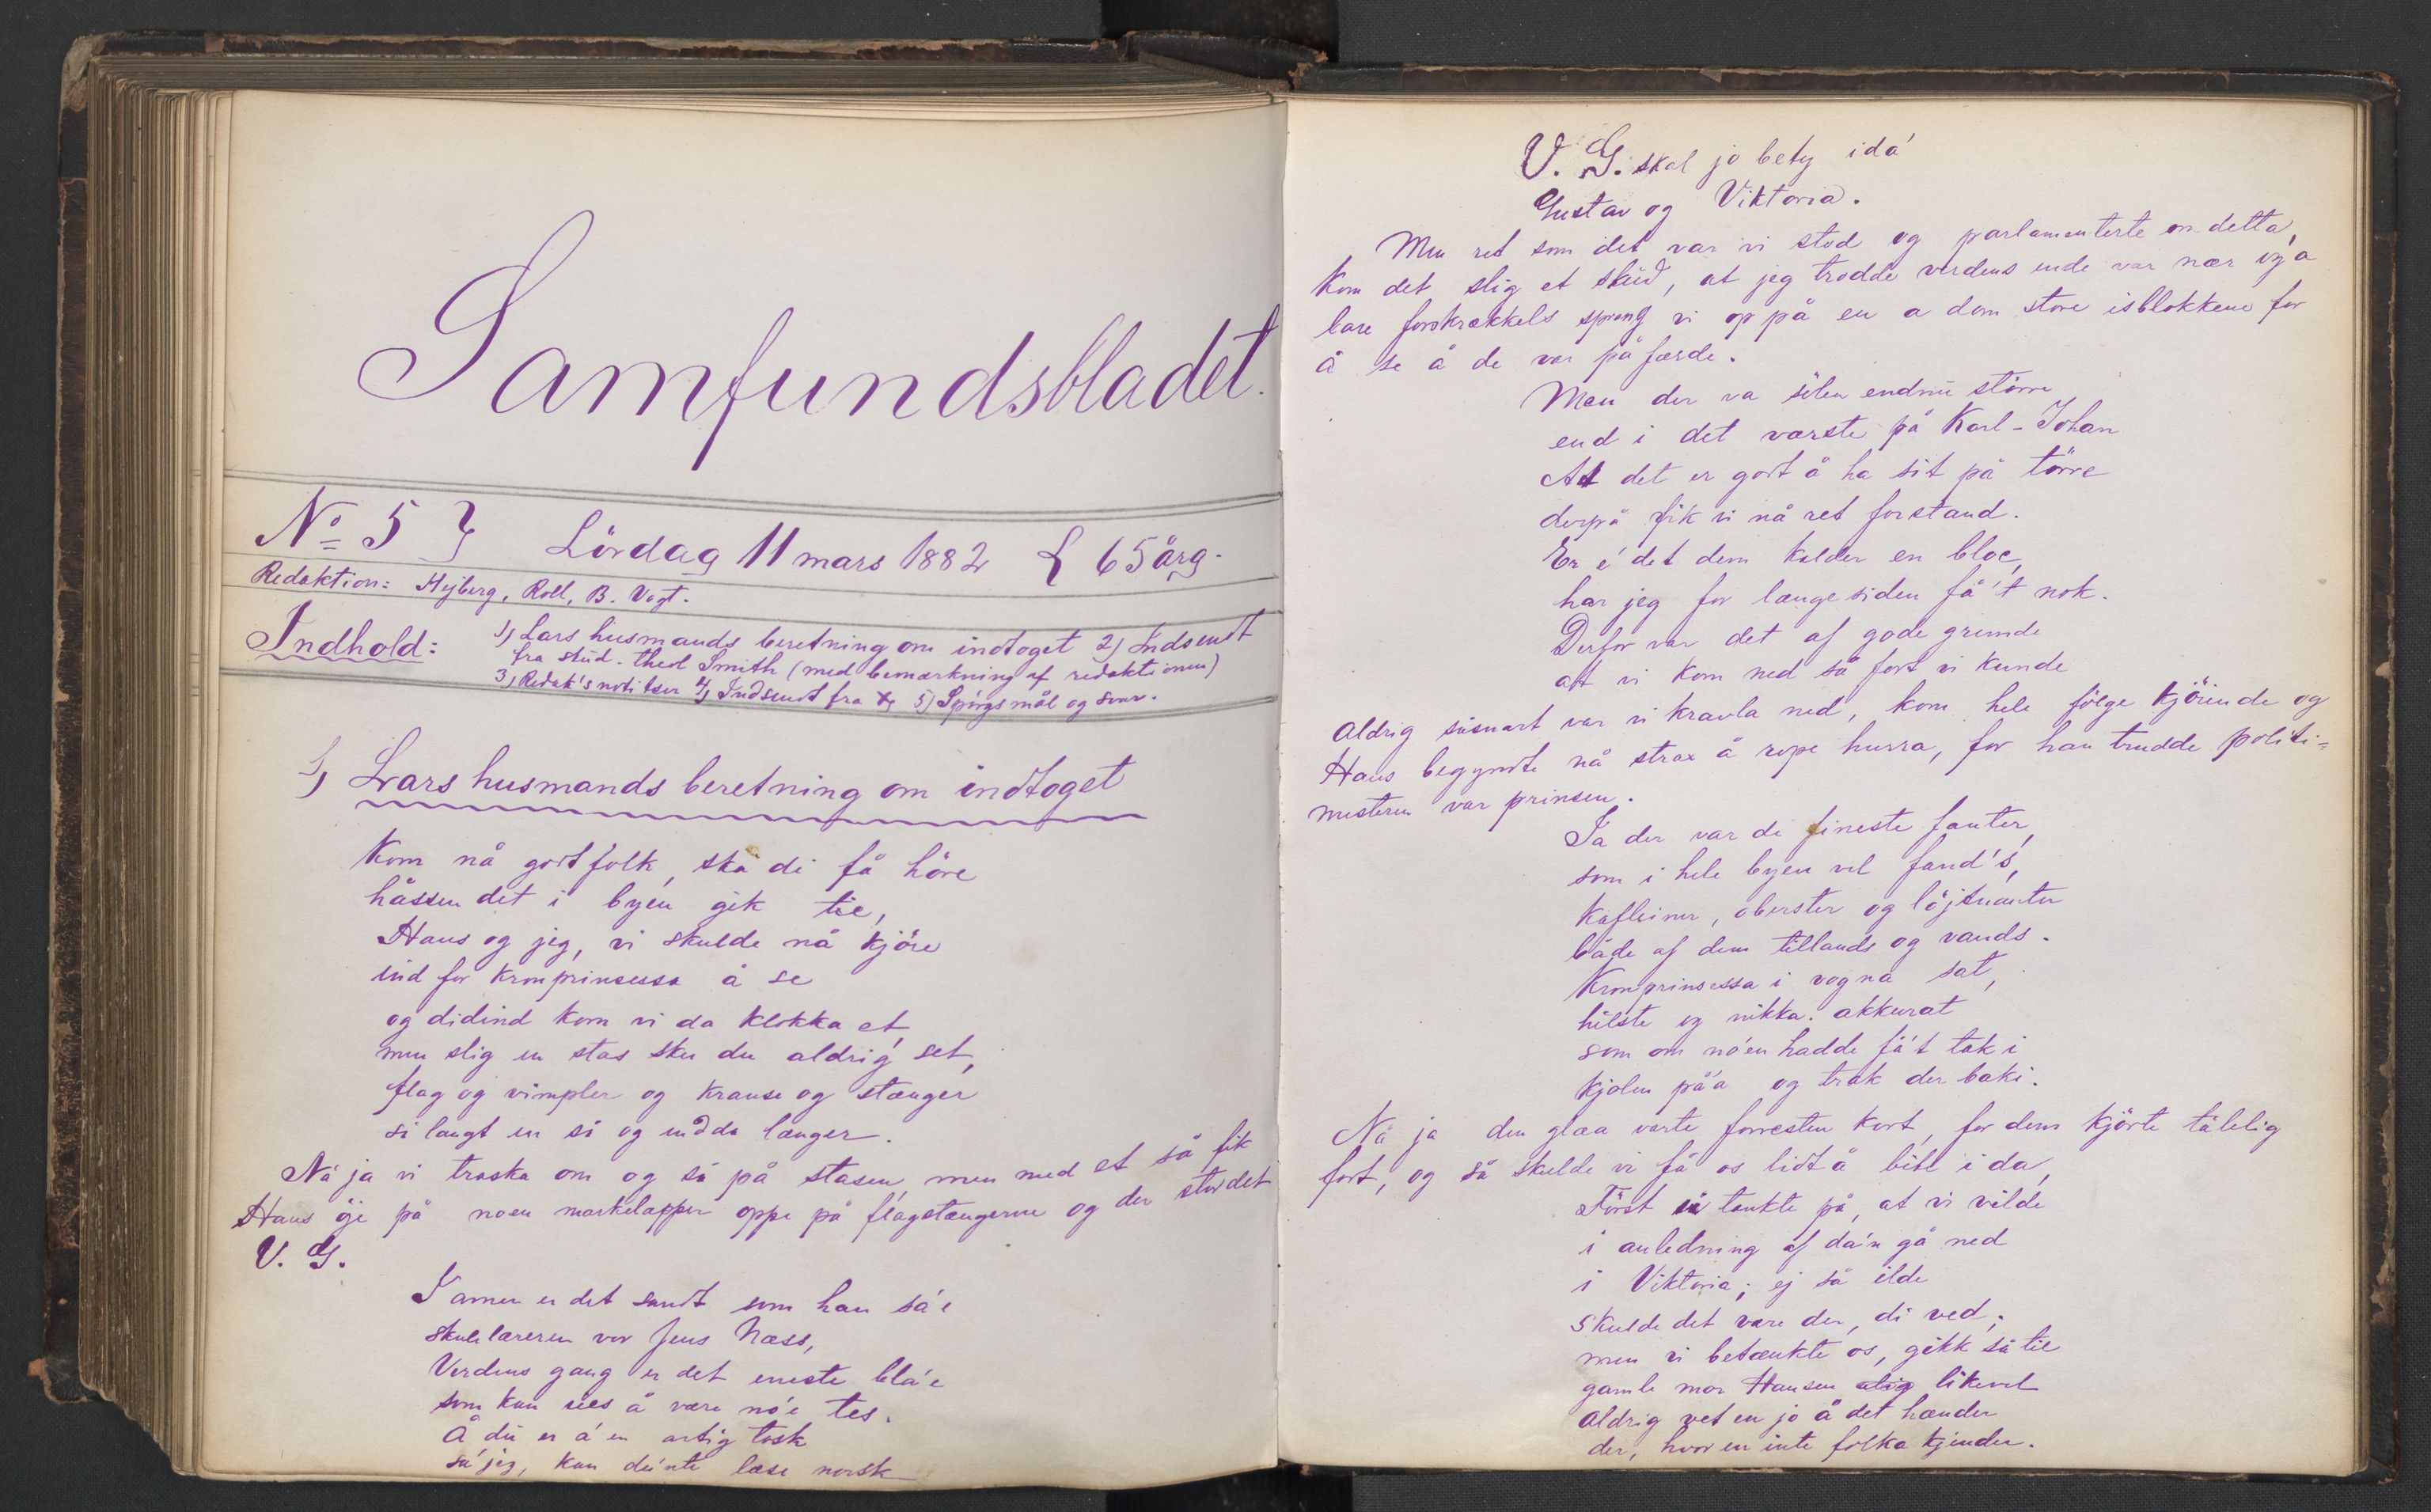 Samfundsbladet.
No 5 } Lördag 11 mars 1882 { 65 årg.
Redaktion: Hejberg, Roll, B. Vogt.
Indhold: 1) Lars husmands beretning om indtoget 2) Indsendt
fra stud. theol Smith (med bemærkning af redaktionen)
3) Redak's notitser 4) Indsendt fra 5) Spörgsmål og svar.
1) Lars husmands beretning om indtoget
Kom nå godtfolk, ska di få höre
håssen det i byen gik til,
Hans og jeg, vi skulde nå kjöre
ind for kronprinsessa å se
og didind kom vi da klokka et,
men slig en stas sku du aldrig set,
flag og vimpler og kranse og stænger
så langt en så og endda længer.
Nå ja vi traska om og så på stasen, men med et så fik
Hans öje på noen markelapper oppe på flagstængerne og der stod det
V. G.
Jamen er det sandt som han sa'e
skulelæreren vor Jens Næss,
Verdens gang er det eneste bla'e
som kan sies å være no'e tes.
Å du er å'en artig tosk
sa' jeg, kan du'nte læse norsk
V. G. skal jo bety ida'
Gustav og Viktoria.
Men ret som idet var vi stod og parlamenterte om detta,
kom det slig et skud, at jeg trodde verdens ende var nær og a
bare forskrækkels sprang vi op på en a dem store isblokkene for
å se å de var på færde.
Men der va sölen endnu större
end i det værste på Karl-Johan
At det er godt å ha sit på törre
derpå fik vi nå ret forstand.
En é det dem kalder en bloc,
har jeg for længe siden få't nok.
Derfor var det af gode grunde
at vi kom ned så fort vi kunde
Aldrig såsnart var vi kravla ned, kom hele fölge kjörende og
Hans begyndte nå strax å rope hurra, for han trudde politi-
mesteren var prinsen.
Ja der var di fineste fanter,
som i hele byen vel fand's,
kafteiner, oberster og löjtnanter
både af dem tillands og vands.
Kronprinsessa i vogna sat,
hilste og nikka akkurat
som om no'en hadde få't tak i
kjolen på'a og trak der baki.
Nå ja den glæa varte forresten kort, for dem kjörte tålelig
fort, og så skulde vi få os lidt å bite i da,
Först vi tænkte på, at vi vilde
i anledning af da'n gå ned
i Viktoria; ej så ilde
skulde det være der, di ved;
men vi betænkte os, gikk så til
gamle mor Hansen likevel
Aldrig vet en jo å det hænder
der, hvor en inte folka kjender.